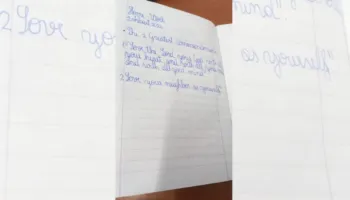 • The 2 Greatest Commandments
① Love The Lord your god with all
your heart and with all your soul
and with all your mind
2 Love your neighbor as yourself"
2 Love yo
mind".
as yourself"